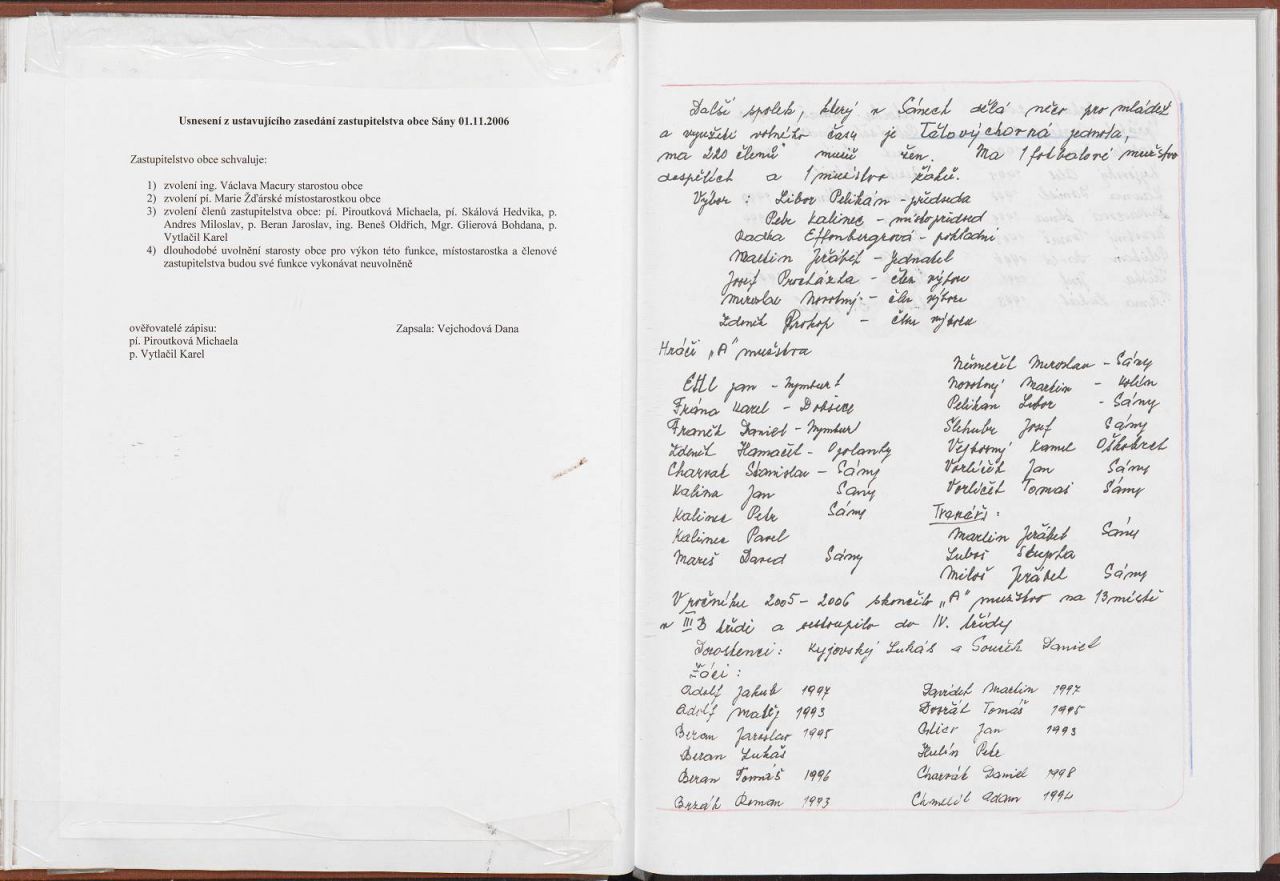 Usnesení z ustavujícího zasedání zastupitelstva obce Sány 01.11.2006
Zastupitelstvo obce schvaluje:
1) zvolení ing. Václava Macury starostou obce
2) zvolení pí. Marie Žďárské místostarostkou obce
3) zvolení členů zastupitelstva obce: pí. Piroutková Michaela, pí. Skálová Hedvika, p.
Andres Miloslav, p. Beran Jaroslav, ing. Beneš Oldřich, Mgr. Glierová Bohdana, p.
Vytlačil Karel
4) dlouhodobé uvolnění starosty obce pro výkon této funkce, místostarostka a členové
zastupitelstva budou své funkce vykonávat neuvolněně
ověřovatelé zápisu:
pí. Piroutková Michaela
p. Vytlačil Karel
Zapsala: Vejchodová Dana
Další spolek, který v Sánech dělá něco pro mládež
a využití volného času je Tělovýchovná jednota,
má 220 členů mužů žen. Má 1 fotbalové mužstvo
dospělých a 1 mužstvo žáků.
Výbor: Libor Pelikán - předseda
Petr Kalinec - místopředsed
Radka Effenbergrová - pokladní
Martin Jeřábek - jednatel
Josef Procházka - člen výboru
Miroslav Novotný - člen výboru
Zdeněk Prokop - člen výboru
Hráči "A" mužstva
Ettl Jan - Nymburk
Frána Karel - Dobšice
Franěk Daniel - Nymbur
Zdeněk Hamáček - Opolanky
Charvát Stanislav - Sány
Kalina Jan Sány
Kalinec Petr Sány
Kalinec Pavel
Mareš David Sány
Němeček Miroslav - Sány
Novotný Martin - Kolín
Pelikán Libor - Sány
Slehubr Josef Sány
Vejborný Kamil Oškobrh
Vorlíček Jan Sány
Vorlíček Tomáš Sány
Trenéři:
Martin Jeřábek Sány
Luboš Skupka
Miloš Jeřábek Sány
V ročníku 2005-2006 skončilo "A" mužstvo na 13 místě
v III B třídě a sestoupilo do IV. třídy
Dorostenci: Kyjovský Lukáš a Souček Daniel
Žáci:
Adolf Jakub 1997
Adolf Matěj 1993
Beran Jaroslav 1995
Beran Lukáš
Beran Tomáš 1996
Brzák Roman 1993
Davídek Martin 1997
Dvořák Tomáš 1995
Glier Jan 1993
Hulín Petr
Charvát Daniel 1998
Chmelík Adam 1994